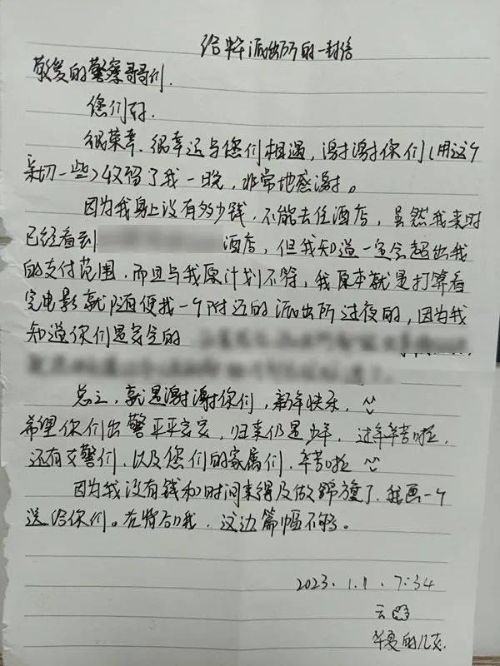 给 派出所的一封信
敬爱的警察哥哥们
您们好.
很荣幸、很幸运与您们相遇,谢谢你们(用这个
亲切一些)收留了我一晚,非常地感谢。
因为我身上没有多少钱,不能去住酒店,虽然我来时
已经看到 酒店,但我知道一定会超出我
的支付范围,而且与我原计划不符,我原本就是打算看
完电影就随便找一个附近的派出所过夜的,因为我
知道你们是安全的
总之,就是谢谢你们,新年快乐.
希望你们出警平平安安,归来仍是少年,过年辛苦啦,
还有交警们,以及您们的家属们,辛苦啦
因为我没有钱和时间来得及做锦旗了,我画一个
送给你们。在背面哦,这边篇幅不够。
2023.1.1 7:34
云
华夏的儿女.